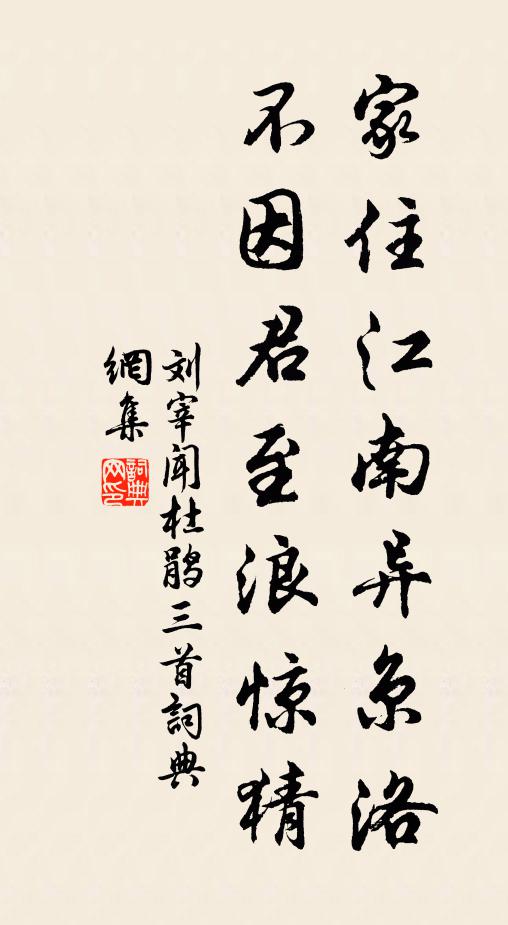 家住江南异京洛
不因君至浪惊猜
刘宰闻杜鹃三首詞典
網集
詞典网印